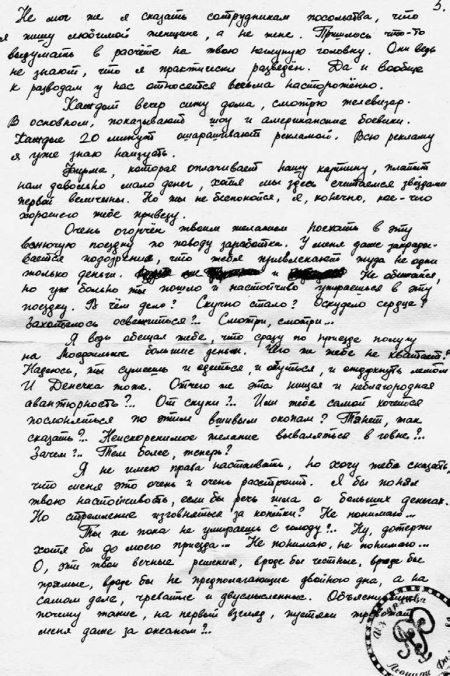 5.
Не мог же я сказать сотрудникам посольства, что
я пишу любимой женщине, а не жене. Пришлось что-то
выдумать в расчёте на твою неглупую головку. Они ведь
не знают, что я практически разведён. Да и вообще
к разводам у нас относятся весьма настороженно.
Каждый вечер сижу дома, смотрю телевизор.
В основном, показывают шоу и американские боевики.
Каждые 20 минут ошарашивают рекламой. Всю рекламу
я уже знаю наизусть.
Фирма, которая оплачивает нашу картину, платит
нам довольно мало денег, хотя мы здесь считаемся звёздами
первой величины. Но ты не беспокойся, я, конечно, кое-что
хорошего тебе привезу.
Очень огорчён твоим желанием поехать в эту
вонючую поездку по поводу заработка. У меня даже закрады-
вается подозрение, что тебя привлекают туда не одни
только деньги. и Не обижайся,
но уж больно ты пошло и настойчиво упираешься в эту
поездку. В чём дело? Скучно стало? Оскудело сердце?
Захотелось освежиться?.. Смотри, смотри...
Я ведь обещал тебе, что сразу по приезде получу
на большие деньги. Чего же тебе не хватает?
Надеюсь, ты сумеешь и одеться, и обуться, и отдохнуть летом
И Денечка тоже. Отчего же эта нищая и неблагородная
авантюрность?.. От скуки?.. Или тебе самой хочется
послоняться по этим вшивым окопам? Тянет, так
сказать?.. Неискоренимое желание вываляться в говне?..
Зачем?.. Тем более, теперь?
Я не имею права настаивать, но хочу тебе сказать,
что меня это очень и очень расстроит. Я бы понял
твою настойчивость, если бы речь шла о больших деньгах.
Но стремление изгавняться за копейки? Не понимаю...
Ты же пока не умираешь с голоду?.. Ну, дотерпи
хотя бы до моего приезда... Не понимаю, не понимаю...
О, эти твои вечные решения, вроде бы честные, вроде бы
прямые, вроде бы не предполагающие двойного дна, а на
самом деле, чреватые и двусмысленные. Объясни,
почему такие, на первый взгляд, пустяки тревожат
меня даже за океаном?..